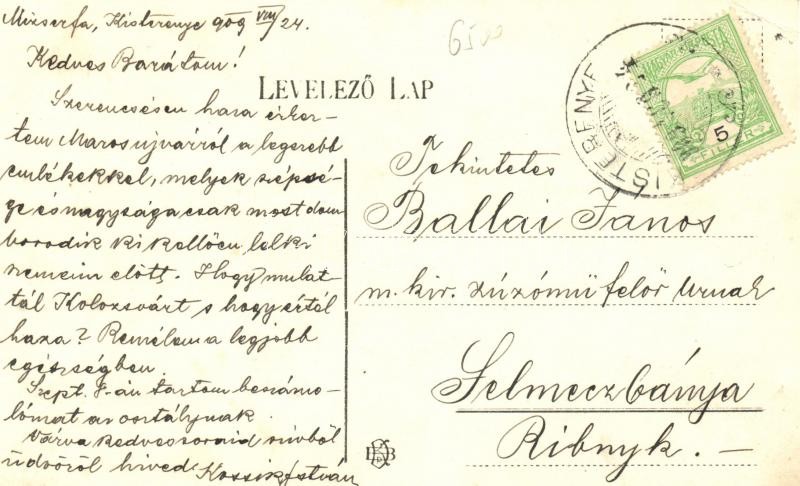 Mizserfa, Kisterenye 909 VIII/24.
6500
Kedves Barátom!
LEVELEZŐ LAP
Szerencsésen haza érkez-
tem Marosujvárról a legszebb
emlékekkel, melyek szépsé-
ge és nagysága csak most dom
borodik ki kellöen lelki
szemeim elött. Hogy mulat-
tál Kolozsvárt s hogy értél
haza? Remélem a legjobb
egészségben.
Szept. 8-án tartom beszámo-
lómat az osztálynak.
Várva kedves soraid szivből
üdvözöl hived Kossik István
KISTERENYE
MAGYAR KIR. POSTA
5
FILLÉR
Tekintetes
Ballai Janos
m. kir. zúzómű felőr Urnak
Selmeczbánya
Ribnyk. —